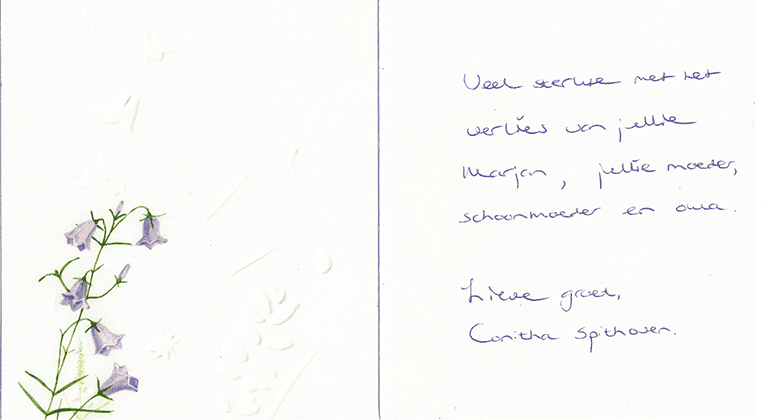 Veel sterkte met het
verlies van jullie
Marjan, jullie moeder,
schoonmoeder en oma.
Lieve groet,
Conitha Spithoven.